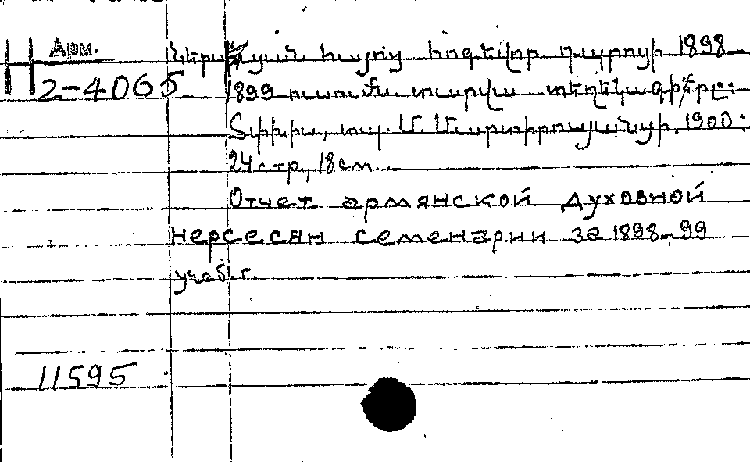 Арм.
II 2-4065
Ներսիսյան հայոց հոգևոր դպրոցի 1898
1899 ուսումն. տարվա տեղեկագիրը:
Տփխիս, տպ. Մ. Մարտիրոսյանցի, 1900:
24 стр, 18 см.
Отчет армянской духовной
нерсесян семенарии за 1898-99
учеб г.
11595